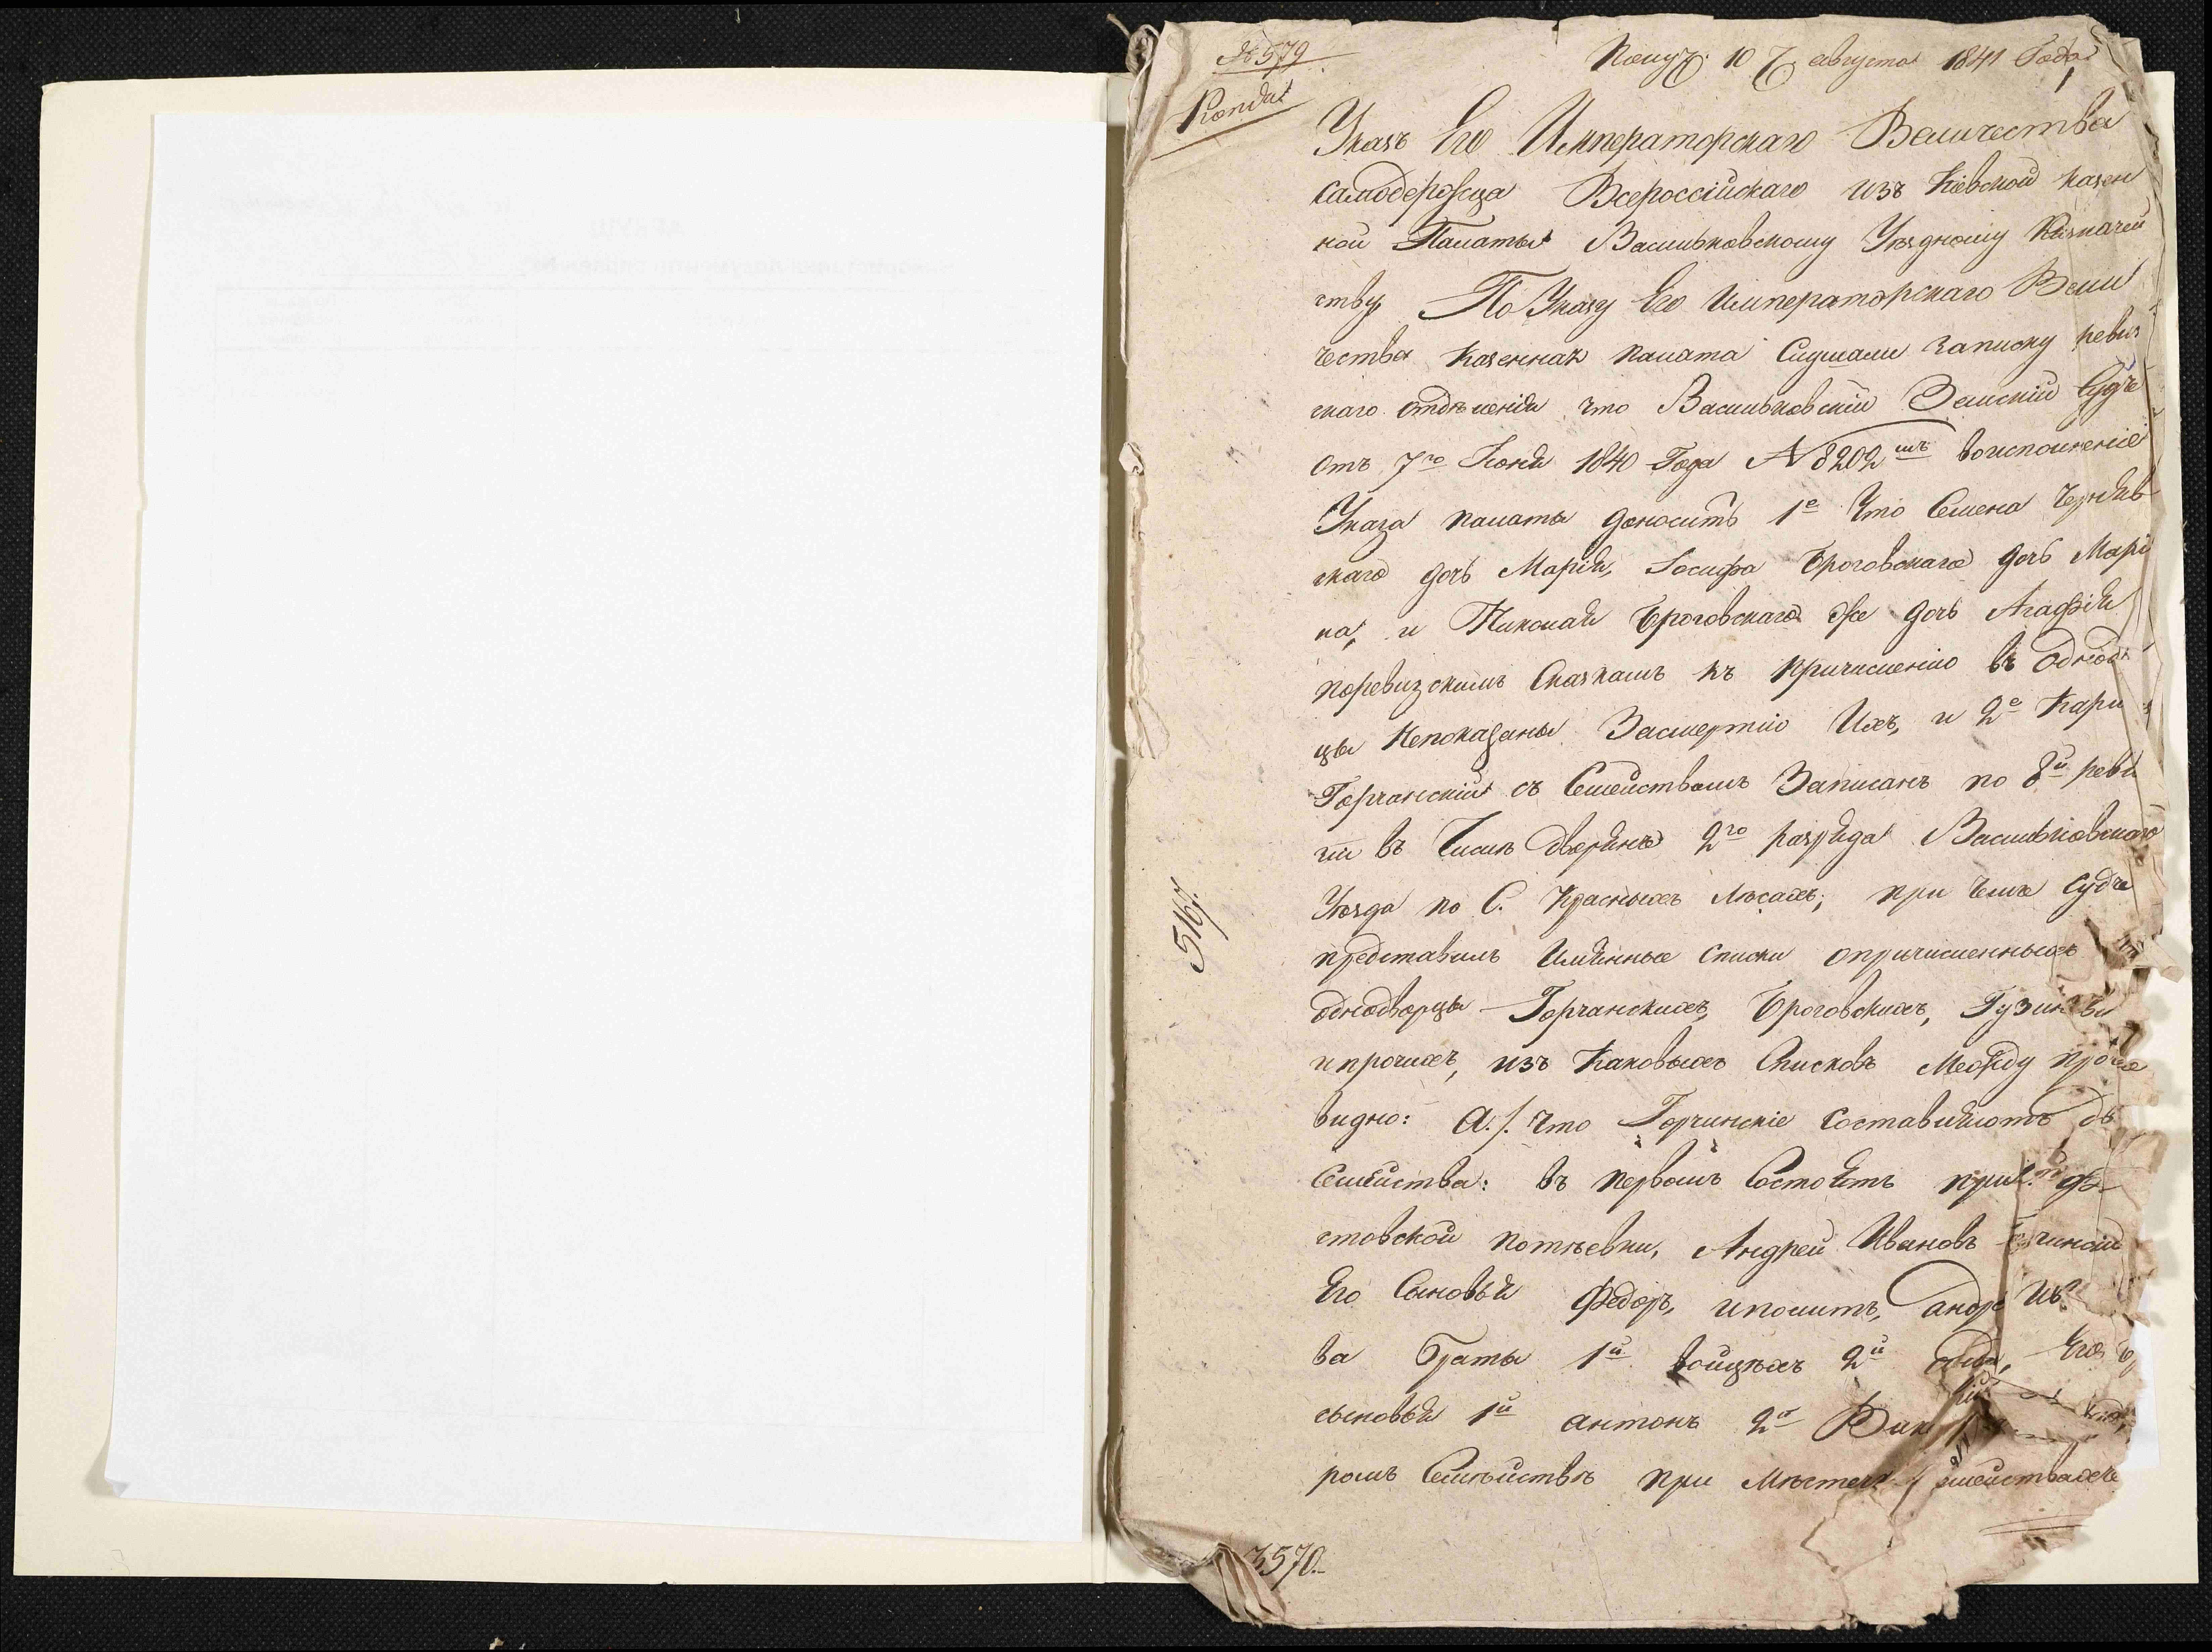 № 579
Получ. 10 августа 1841 Года
Указъ Его Императорскаго Величества
Самодержца Всероссійскаго изъ Кіевской казен
ной Палаты Васильковскому Уѣздному Казначей
ству По Указу Его Императорскаго Вели
чества Казенная палата Слушали Записку ревиз
скаго отдѣленія что Васильковскій Земскій Судъ
отъ 7го Іюня 1840 Года № 8202мъ воисполненіе
Указа палаты доноситъ 1е Что Семена Черняв
скаго дочь Марія, Іосифа Броговскаго дочь Марі
на, и Николая Броговскаго же дочь Агафія
поревизскимъ Сказкамъ къ причисленію въ Однодв
цы Непоказаны Засмертію Ихъ, и 2е Кари
Горчанскій съ Семействомъ Записанъ по 8й реви
зіи въ Числѣ дворянъ 2го разряда Васильковскаго
Уѣзда по С. Красныхъ Лѣсахъ; при чемъ судъ
представилъ Имянные Списки опричисленныхъ
однодворцы Горчанскихъ, Броговскихъ,
ипрочихъ, изъ Каковыхъ Списковъ Между проче
видно: а./. что Горчинскіе Составляютъ дв
Семейства: въ первомъ Состоятъ при
стовской потѣевки, Андрей Ивановъ
Его Сыновья Федоръ, иполитъ,
ва Браты 1й войцѣхъ 2й Его
сыновья 1й антонъ 2й
ромъ Семѣйствѣ при
516.
3570.